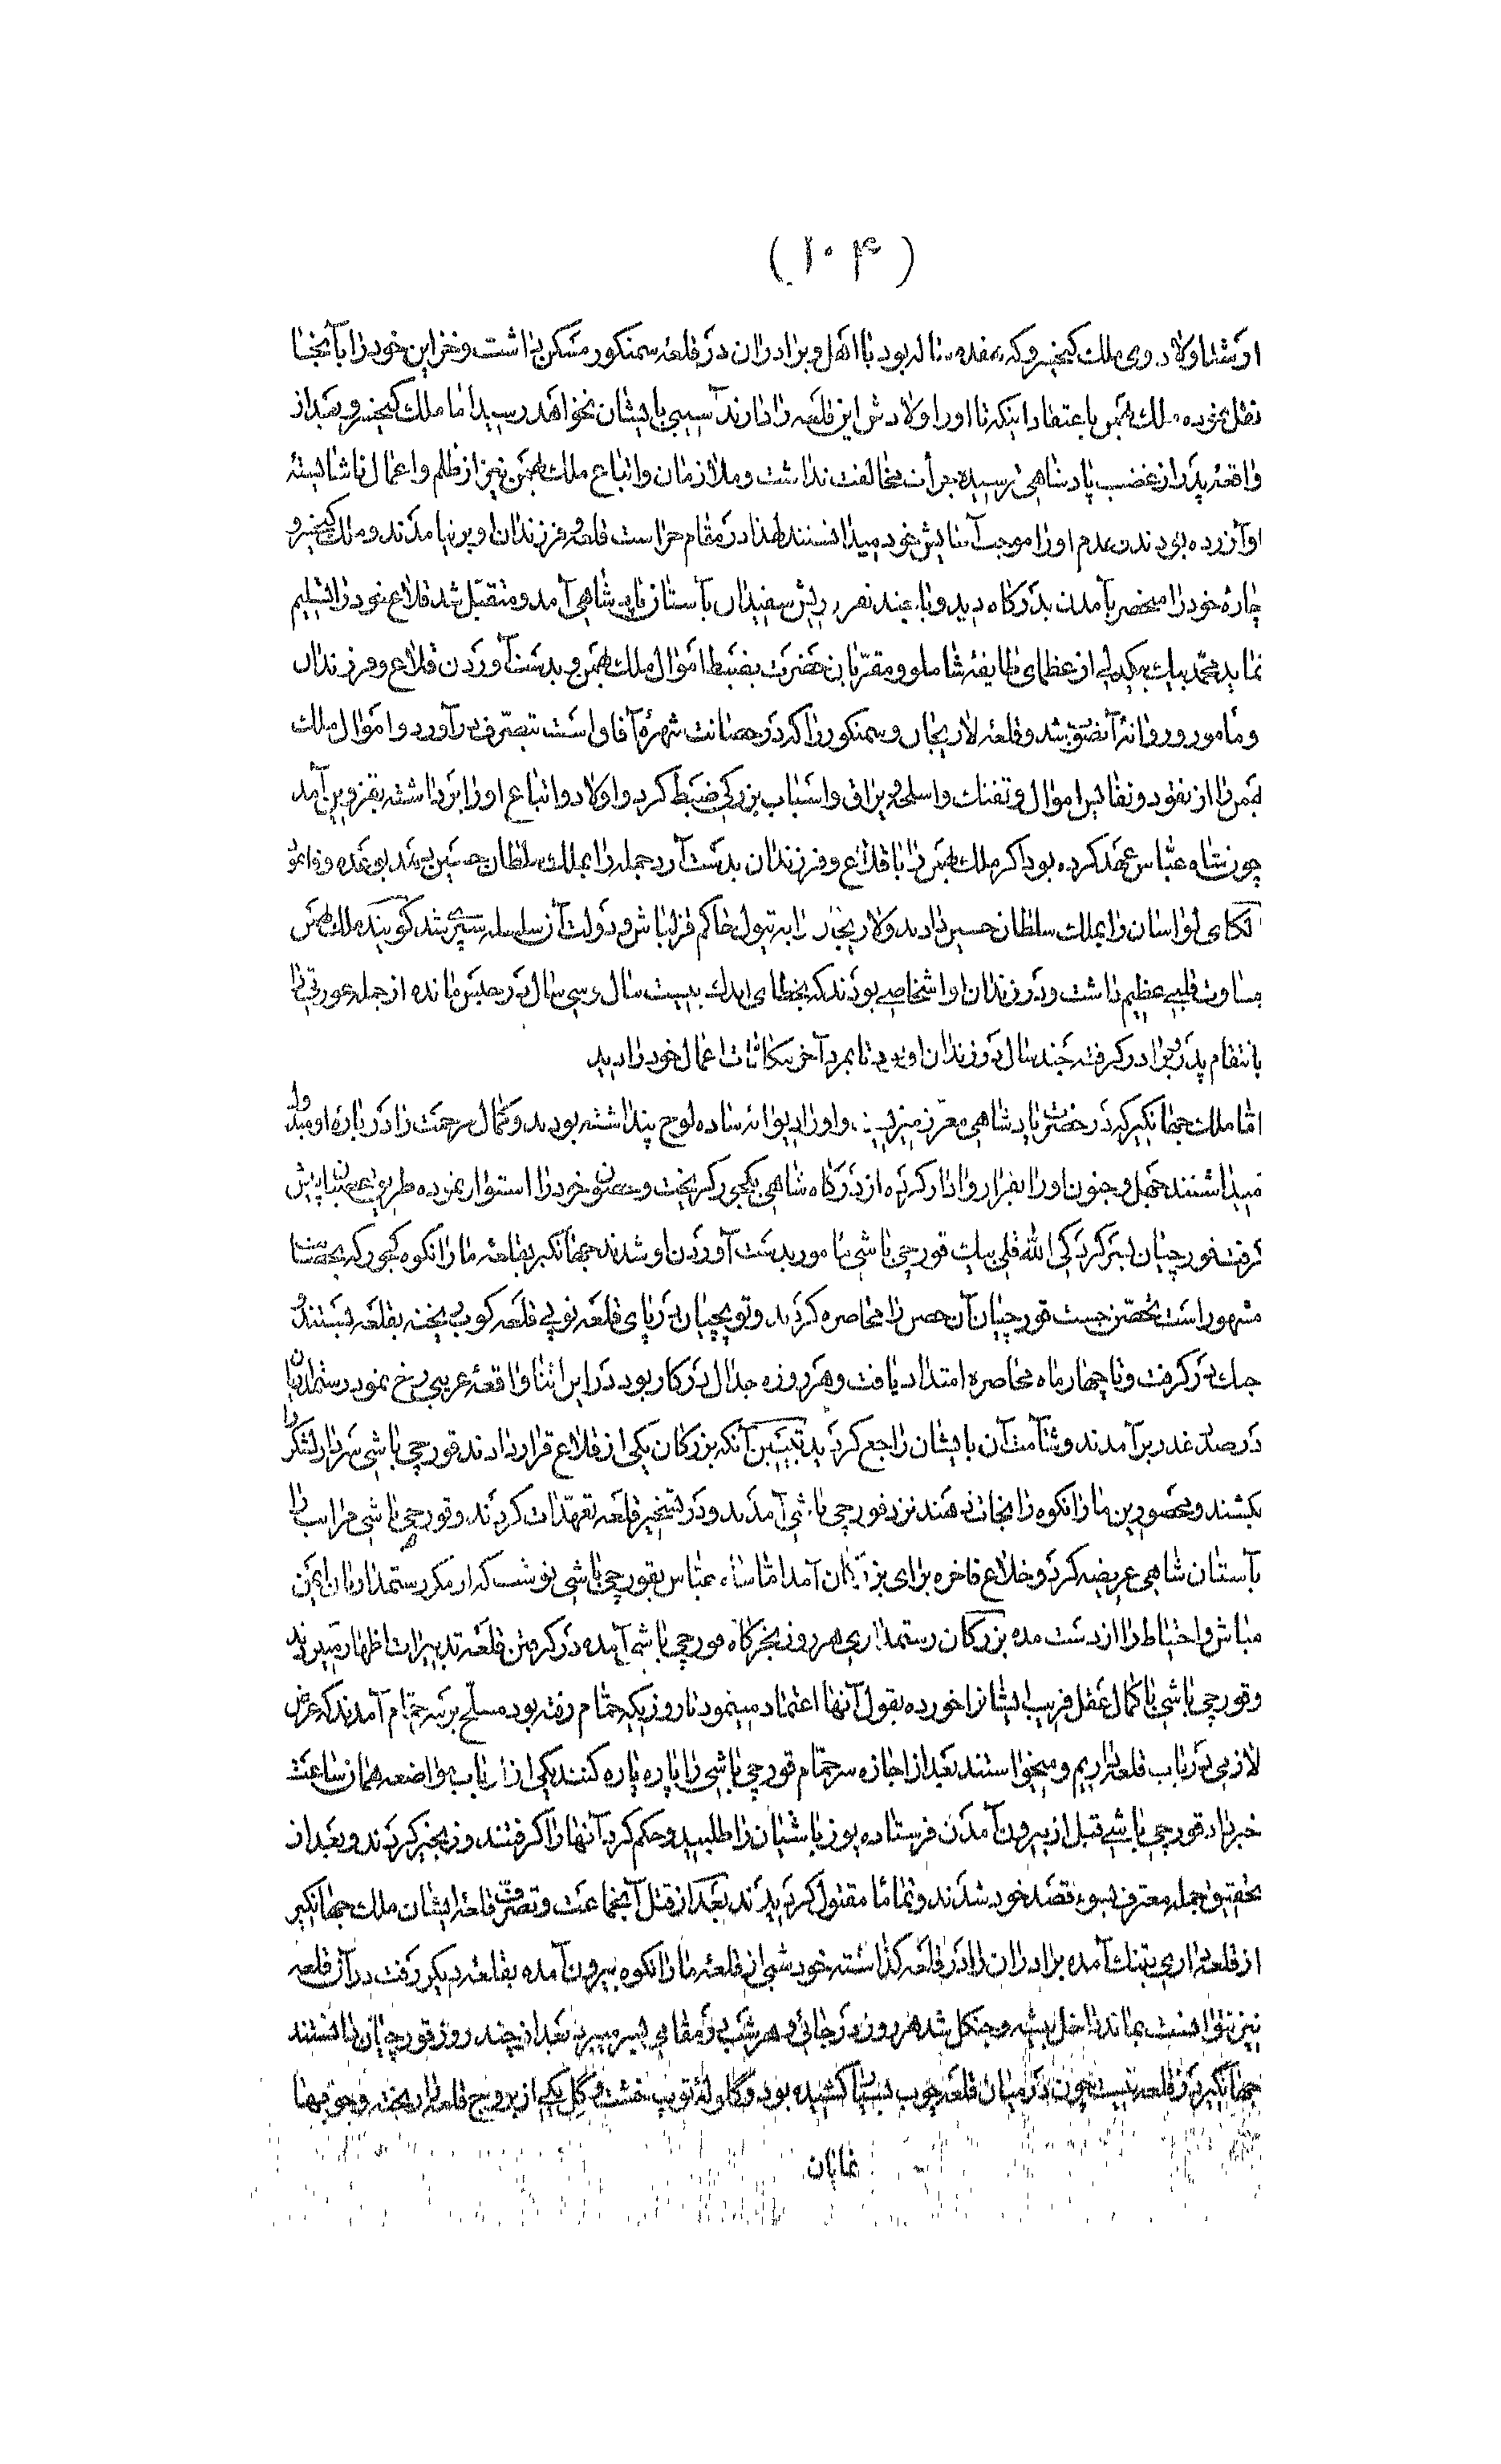 ( ۱۰۴ )
اوشد اولاد وی ملک کیخسرو که هفده ساله بود با اهل و برادران در قلعه سمنکور مسکن داشت و خزاین خود را بآنجا
نقل نموده ملک بهمن باعتقاد اینکه تا او را و اولادش این قلعه را دارند آسیبی بایشان نخواهد رسید اما ملک کیخسرو بعد از
واقعه پدر از غضب پادشاهی ترسیده جرأت مخالفت نداشت و ملازمان و اتباع ملک بهمن نیز از ظلم و اعمال ناشایسته
او آزرده بودند عدم او را موجب آسایش خود میدانستند لهذا در مقام حراست قلعه و فرزندان او برنیامدند و ملک کیخسرو
چاره خود را منحصر بآمدن بدرگاه دید و با چند نفر ریش سفیدان بآستان شاهی آمد و متقبل شد قلاع خود را تسلیم
نماید محمد بیک بیکدلی از عظمای طایفه شاملو و مقربان حضرت بضبط اموال ملک بهمن و بدست آوردن قلاع و فرزندان
و مامور و روانه آنصوب شد و قلعه لاریجان و سمنکور را که در حصانت شهره آفاق است بتصرف درآورد و اموال ملک
بهمن را از نقود و نفایس اموال و تفنک و اسلحه و یراق و اسباب بزرکی ضبط کرد و اولاد و اتباع او را برداشته بقزوین آمد
چون شاه عباس عهد کرده بود اکر ملک بهمن را با قلاع و فرزندان بدست آرد جمله را بملک سلطان حسین دهد بوعده وفا نمود
لکای لواسان را بملک سلطان حسین دادند و لاریجان را به تیول حاکم قزلباش و دولت آن سلسله سپری شد کویند ملک بهمن
قساوت قلبی عظیم داشت و در زندان او اشخاصی بودند که بخطای اندک بیست سال و سی سال در حبس مانده از جمله عورتی را
بانتقام پدر و برادر کرفته چند سال در زندان او بود تا بمرد آخر مکافات اعمال خود را دید
اما ملک جهانکیر که در حضرت پادشاهی معزز میزیست و او را دیوانه ساده لوح پنداشته بودند و کمال مرحمت را در باره او مبذول
میداشتند جهل و جنون او را بفرار وادار کرده از درکاه شاهی بکجور کریخت و حصون خود را استوار نموده طریق عصیان پیش
کرفت قورچیان بسرکردکی الله قلی بیک قورچی باشی مامور بدست آوردن او شدند جهانکیر بقلعه مارانکوه کجور که بحصانت
مشهور است تحصن جست قورچیان آن حصن را محاصره کردند و توپچیان در پای قلعه توپ قلعه کوب ریخته بقلعه بستند و
جنک در کرفت و تا چهار ماه محاصره امتداد یافت و هر روزه جدال در کار بود در این اثنا واقعه غریبی رخ نمود رستمداریان
در صدد غدر برآمدند و شآمت آن بایشان راجع کردید تبیین آنکه بزرکان یکی از قلاع قرار دادند قورچی باشی سردار لشکر را
بکشند و محصورین مارانکوه را نجات دهند نزد قورچی باشی آمدند و در تسخیر قلعه تعهدات کردند و قورچی باشی مراتب را
بآستان شاهی عریضه کرد و خلاع فاخره برای بزرکان آمد اما شاه عباس بقورچی باشی نوشت که از مکر رستمداریان ایمن
مباش و احتیاط را از دست مده بزرکان رستمداری هر روز بخرکاه قورچی باشی آمده در کرفتن قلعه تدبیرات اظهار میکردند
و قورچی باشی با کمال عقل فریب ایشانرا خورده بقول آنها اعتماد مینمود تا روزیکه حمام رفته بود مسلح بر سر حمام آمدند که عرض
لازمی در باب قلعه داریم و میخواستند بعد از اجازه سر حمام قورچی باشی را پاره پاره کنند یکی از ارباب مواضعه همان ساعت
خبر داد قورچی باشی قبل از بیرون آمدن فرستاده یوزباشیان را طلبید و حکم کرد آنها را کرفتند و زنجیر کردند و بعد از
تحقیق جمله معترف بسوء قصد خود شدند و تماما مقتول کردیدند بعد از قتل آنجماعت و تصرف قلعه ایشان ملک جهانکیر
از قلعه داری بتنک آمده برادران را در قلعه کذاشته خود شبی از قلعه مارانکوه بیرون آمده بقلعه دیکر رفت در آن قلعه
نیز نتوانست بماند داخل بیشه و جنکل شد هر روز در جائی و هر شب در مقامی بسر میبرد بعد از چند روز قورچیان دانستند
جهانکیر در قلعه نیست چون در میان قلعه چوب بست کشیده بود و کلوله توپ خشت و کل یکی از بروج قلعه را ریخته و چوبها
نمایان